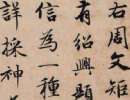 右周文矩
有紹興題
信為一種
詳探神